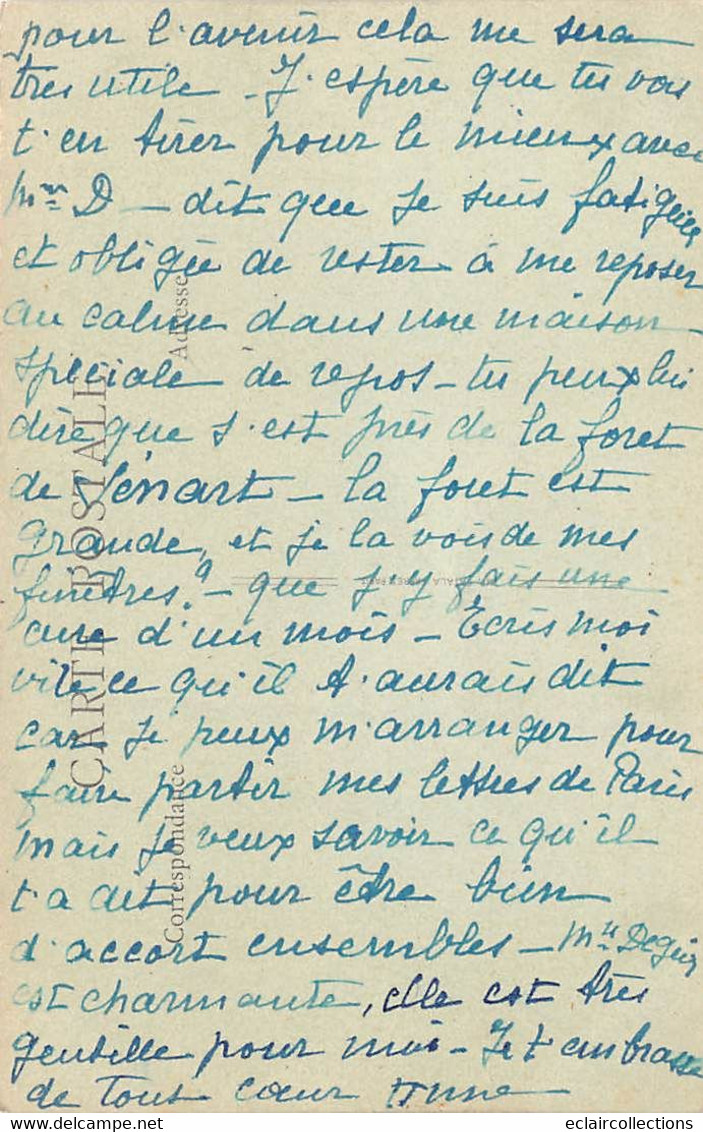 pour l'avenir cela me sera
tres utile - J'espère que tu vas
t'en tirer pour le mieux avec
Mme D - dit que je suis fatiguée
et obligée de rester à me reposer
au calme dans une maison
spéciale de repos - tu peux lui
dire que s'est près de la foret
de Sénart - la foret est
grande, et je la vois de mes
finêtres. - que j'y fais une
cure d'un mois - Ecris moi
vite ce qu'il t'aurais dit
car je peux m'arranger pour
faire partir mes lettres de Paris
mais je veux savoir ce qu'il
t'a dit pour être bien
d'accort ensembles - Mlle
est charmante, elle est très
gentille pour moi - Je t'embrasse
de tout cœur
CARTE POSTALE
Correspondance
Adresse
eclaircollections.com